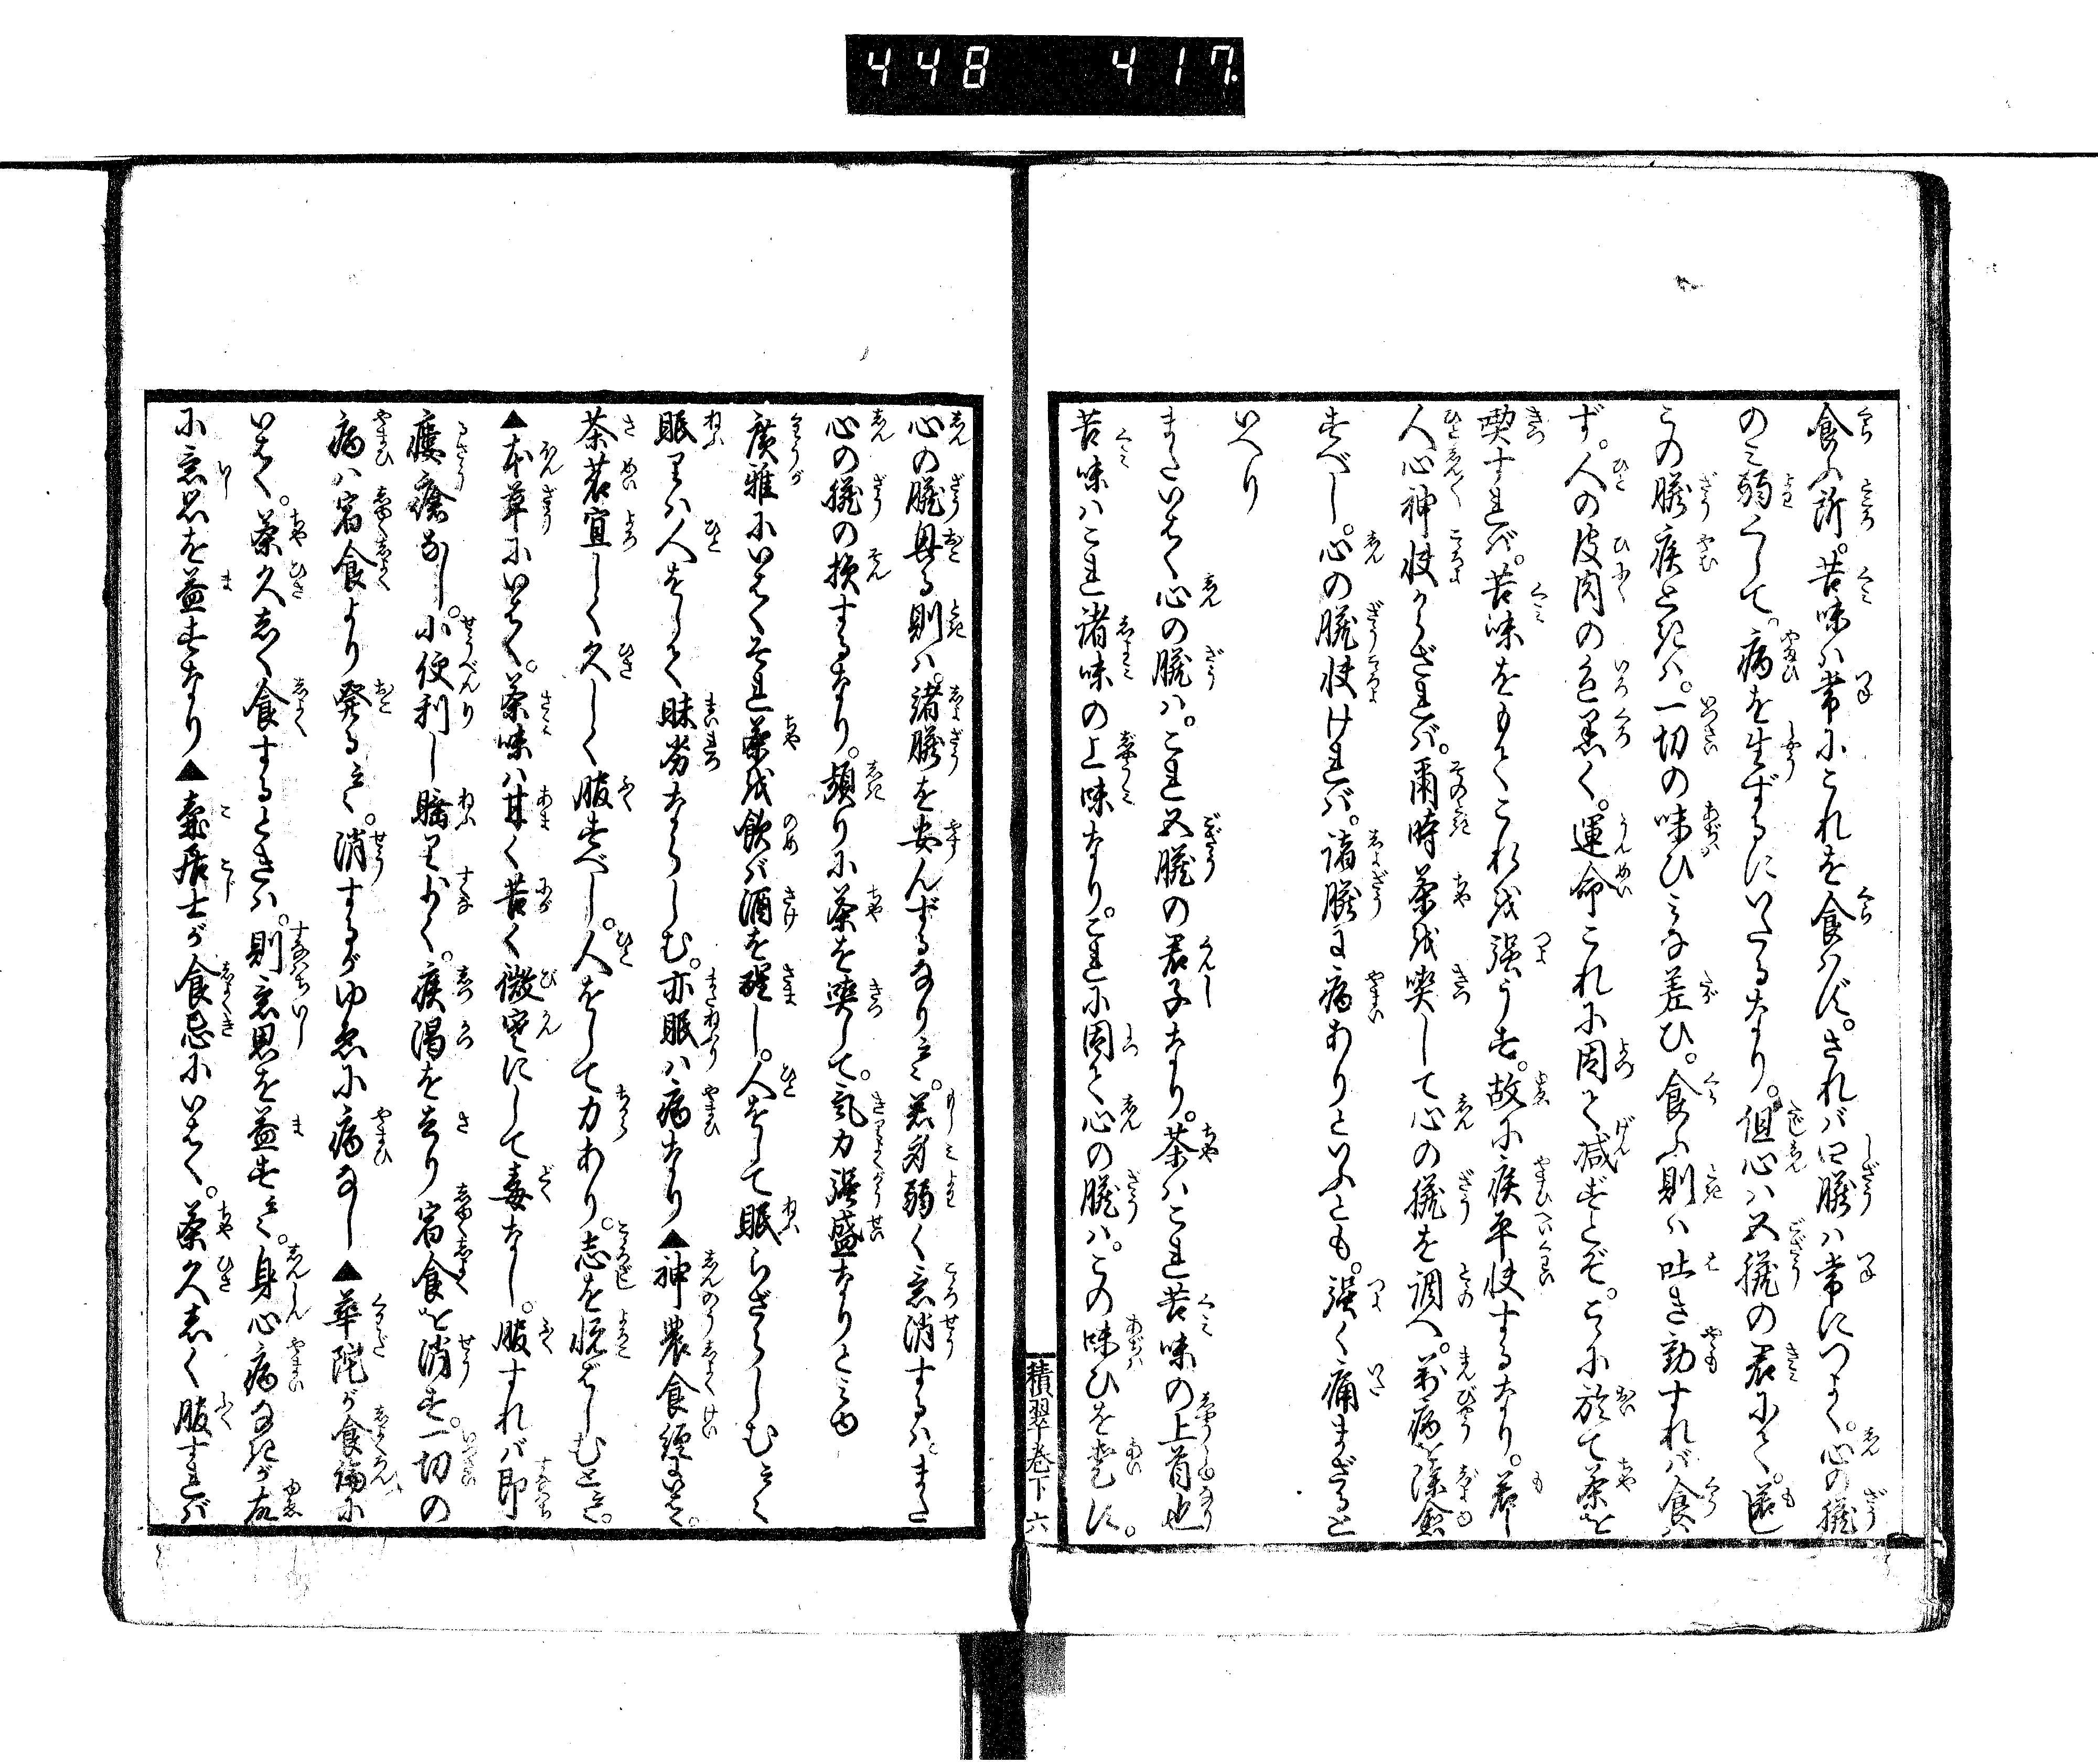 448 417
食ふ所。苦味ハ常にこれを食ハず。されバ四臓ハ常につよく。心の臓
のミ弱くして。病を生ずるにいたるなり。但心ハ五臓の君にて。
この臓疾ときハ。一切の味ひミな差ひ。食ふ則ハ吐き動すれバ食ハ
ず。人の皮肉の色黒く。運命これに因て減ずとぞ。こゝに於て茶を
喫すれバ。苦味をもてこれを強うす。故に疾平快するなり。若
人心神快からざれバ。爾時茶を喫して心の臓を調へ。万病を除愈
すべし。心の臓快けれバ。諸臓に病ありといふとも。強く痛まざると
いへり
またいはく心の臓ハ。これ五臓の君子なり。茶ハこれ苦味の上首也
苦味ハこれ諸味の上味なり。これに因て心の臓ハ。この味ひを愛す。
積翠巻下 六
心の臓興る則ハ。諸臓を安んずるなり云。若身弱く意消するハ。また
心の臓の損するなり。頻りに茶を喫して。気力強盛なりと云々
広雅にいはくそれ茶を飲バ酒を醒し。人をして眠らざらしむ云く
眠りハ人をして昧劣ならしむ。亦眠ハ病なり▲神農食経にいはく。
茶茗宜しく久しく服すべし。人をして力あり。志を悦ばしむと云。
▲本草にいはく。茶味ハ甘く苦く微寒にして毒なし。服すれバ即
瘻瘡なし。小便利し睡り少く。疾渇を去り宿食を消す。一切の
病ハ宿食より発る云く。消するがゆゑに病なし▲華陀が食論に
いはく。茶久しく食するときハ。則意思を益す云く。身心病なきが故
に意思を益すなり▲壺居士が食忌にいはく。茶久しく服すれバ